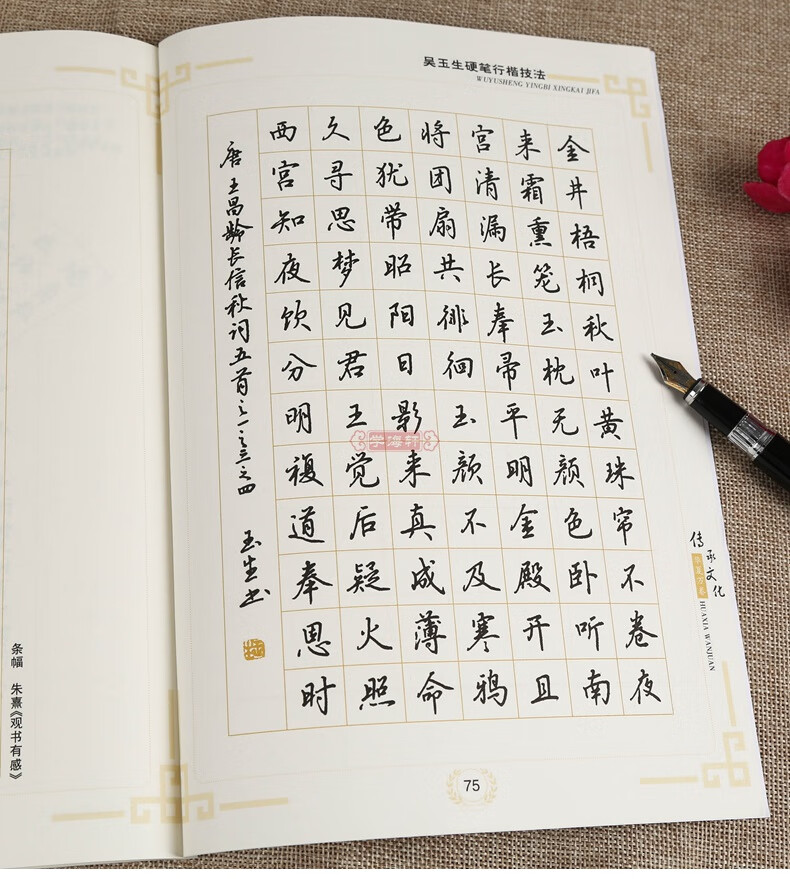 吴玉生硬笔行楷技法
WUYUSHENG YINGBI XINGKAI JIFA
金井梧桐秋叶黄珠帘不卷夜
来霜熏笼玉枕无颜色卧听南
宫清漏长奉帚平明金殿开且
将团扇共徘徊玉颜不及寒鸦
色犹带昭阳日影来真成薄命
久寻思梦见君王觉后疑火照
西宫知夜饮分明複道奉恩时
唐王昌龄长信秋词五首之一之三之四 玉生书
学海轩
传承文化
华夏万卷
HUAXIA WANJUAN
75
条幅 朱熹《观书有感》